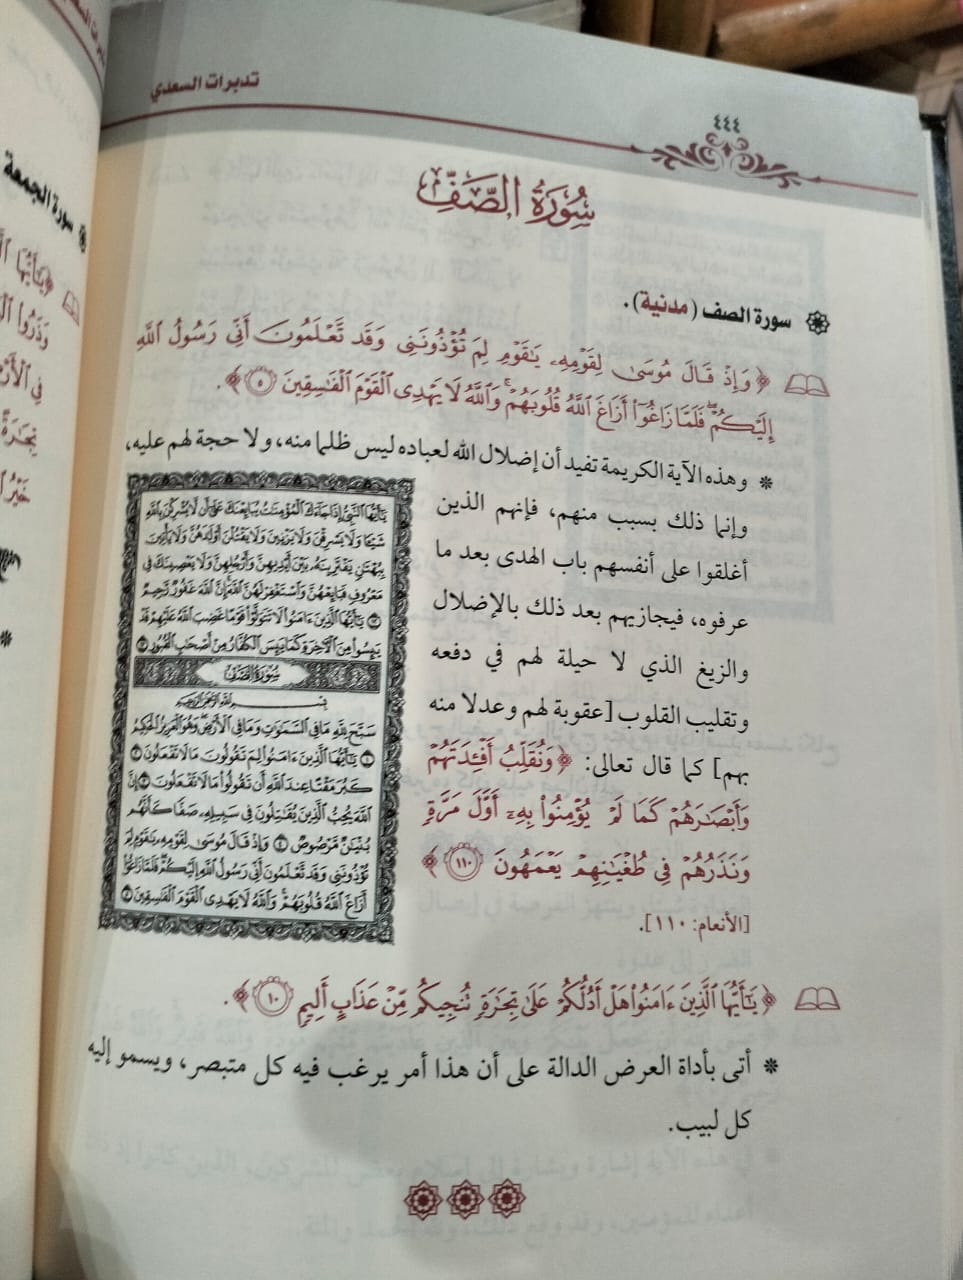 تدبرات السعدي
٤٤٤
سُورَةُ الصَّفِّ
سورة الصف (مدنية).
﴿ وَإِذْ قَالَ مُوسَىٰ لِقَوْمِهِۦ يَٰقَوْمِ لِمَ تُؤْذُونَنِى وَقَد تَّعْلَمُونَ أَنِّى رَسُولُ ٱللَّهِ
إِلَيْكُمْ ۖ فَلَمَّا زَاغُوٓا۟ أَزَاغَ ٱللَّهُ قُلُوبَهُمْ ۚ وَٱللَّهُ لَا يَهْدِى ٱلْقَوْمَ ٱلْفَٰسِقِينَ ٥ ﴾.
* وهذه الآية الكريمة تفيد أن إضلال الله لعباده ليس ظلما منه، ولا حجة لهم عليه،
وإنما ذلك بسبب منهم، فإنهم الذين
أغلقوا على أنفسهم باب الهدى بعد ما
عرفوه، فيجازيهم بعد ذلك بالإضلال
والزيغ الذي لا حيلة لهم في دفعه
وتقليب القلوب [عقوبة لهم وعدلا منه
بهم] كما قال تعالى: ﴿ وَنُقَلِّبُ أَفْـِٔدَتَهُمْ
وَأَبْصَٰرَهُمْ كَمَا لَمْ يُؤْمِنُوا۟ بِهِۦٓ أَوَّلَ مَرَّةٍ
وَنَذَرُهُمْ فِى طُغْيَٰنِهِمْ يَعْمَهُونَ ١١٠ ﴾
[الأنعام: ١١٠].
يَٰٓأَيُّهَا ٱلنَّبِىُّ إِذَا جَآءَكَ ٱلْمُؤْمِنَٰتُ يُبَايِعْنَكَ عَلَىٰٓ أَن لَّا يُشْرِكْنَ بِٱللَّهِ
شَيْـًٔا وَلَا يَسْرِقْنَ وَلَا يَزْنِينَ وَلَا يَقْتُلْنَ أَوْلَٰدَهُنَّ وَلَا يَأْتِينَ
بِبُهْتَٰنٍ يَفْتَرِينَهُۥ بَيْنَ أَيْدِيهِنَّ وَأَرْجُلِهِنَّ وَلَا يَعْصِينَكَ فِى
مَعْرُوفٍ فَبَايِعْهُنَّ وَٱسْتَغْفِرْ لَهُنَّ ٱللَّهَ ۖ إِنَّ ٱللَّهَ غَفُورٌ رَّحِيمٌ
١٢ يَٰٓأَيُّهَا ٱلَّذِينَ ءَامَنُوا۟ لَا تَتَوَلَّوْا۟ قَوْمًا غَضِبَ ٱللَّهُ عَلَيْهِمْ قَدْ
يَئِسُوا۟ مِنَ ٱلْءَاخِرَةِ كَمَا يَئِسَ ٱلْكُفَّارُ مِنْ أَصْحَٰبِ ٱلْقُبُورِ ١٣
سُورَةُ الصَّفِّ
بِسْمِ ٱللَّهِ ٱلرَّحْمَٰنِ ٱلرَّحِيمِ
سَبَّحَ لِلَّهِ مَا فِى ٱلسَّمَٰوَٰتِ وَمَا فِى ٱلْأَرْضِ ۖ وَهُوَ ٱلْعَزِيزُ ٱلْحَكِيمُ
١ يَٰٓأَيُّهَا ٱلَّذِينَ ءَامَنُوا۟ لِمَ تَقُولُونَ مَا لَا تَفْعَلُونَ ٢
كَبُرَ مَقْتًا عِندَ ٱللَّهِ أَن تَقُولُوا۟ مَا لَا تَفْعَلُونَ ٣ إِنَّ
ٱللَّهَ يُحِبُّ ٱلَّذِينَ يُقَٰتِلُونَ فِى سَبِيلِهِۦ صَفًّا كَأَنَّهُم
بُنْيَٰنٌ مَّرْصُوصٌ ٤ وَإِذْ قَالَ مُوسَىٰ لِقَوْمِهِۦ يَٰقَوْمِ لِمَ
تُؤْذُونَنِى وَقَد تَّعْلَمُونَ أَنِّى رَسُولُ ٱللَّهِ إِلَيْكُمْ ۖ فَلَمَّا زَاغُوٓا۟
أَزَاغَ ٱللَّهُ قُلُوبَهُمْ ۚ وَٱللَّهُ لَا يَهْدِى ٱلْقَوْمَ ٱلْفَٰسِقِينَ ٥
﴿ يَٰٓأَيُّهَا ٱلَّذِينَ ءَامَنُوا۟ هَلْ أَدُلُّكُمْ عَلَىٰ تِجَٰرَةٍ تُنجِيكُم مِّنْ عَذَابٍ أَلِيمٍ ١٠ ﴾.
* أتى بأداة العرض الدالة على أن هذا أمر يرغب فيه كل متبصر، ويسمو إليه
كل لبيب.
سورة الجمعة
وَذَرُوا۟
فِى